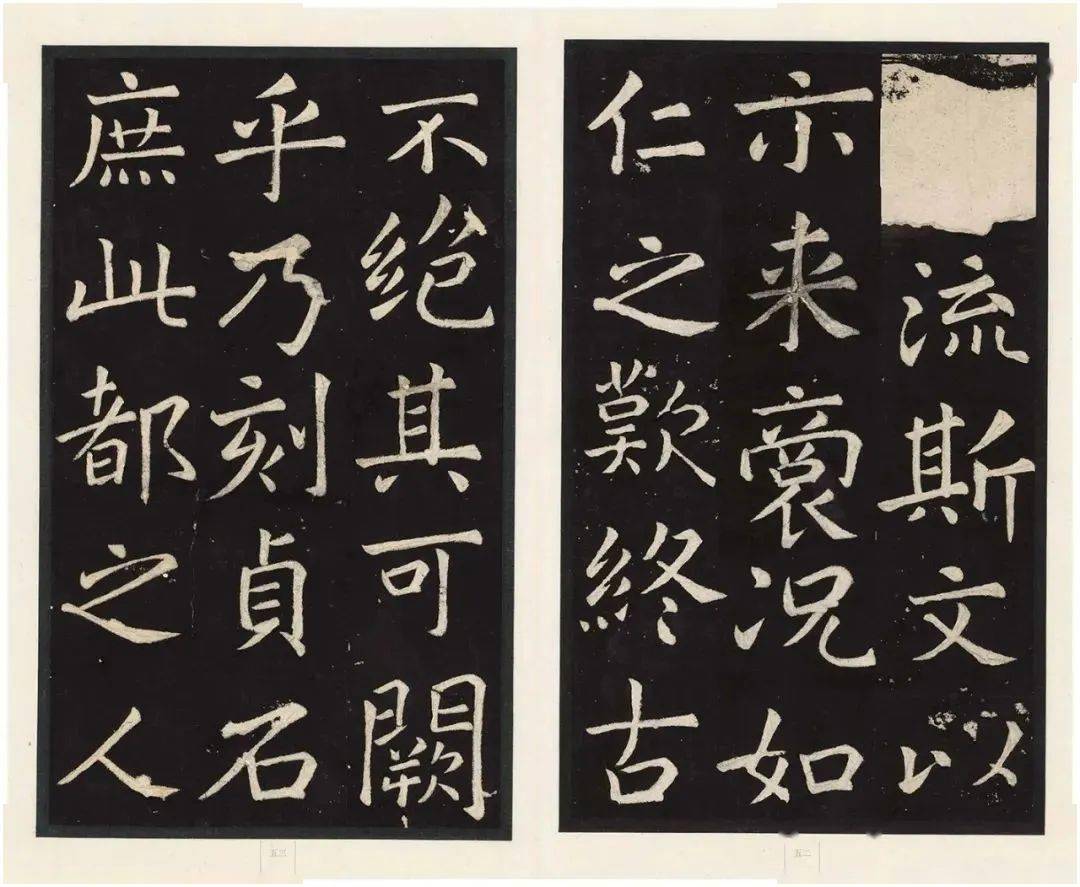 流斯文以
示来裔况如
仁之歎終古
不絶其可闕
乎乃刻貞石
庶此都之人
五二
五三